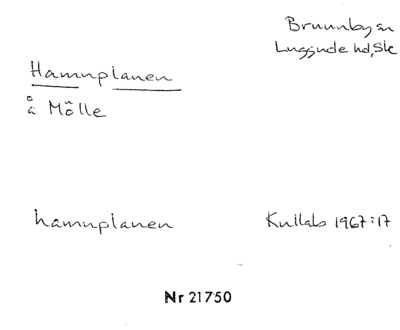 Brunnby sn
Luggude hd, Sk
Hamnplanen
å Mölle
hamnplanen
Kullab 1967:17
Nr 21750